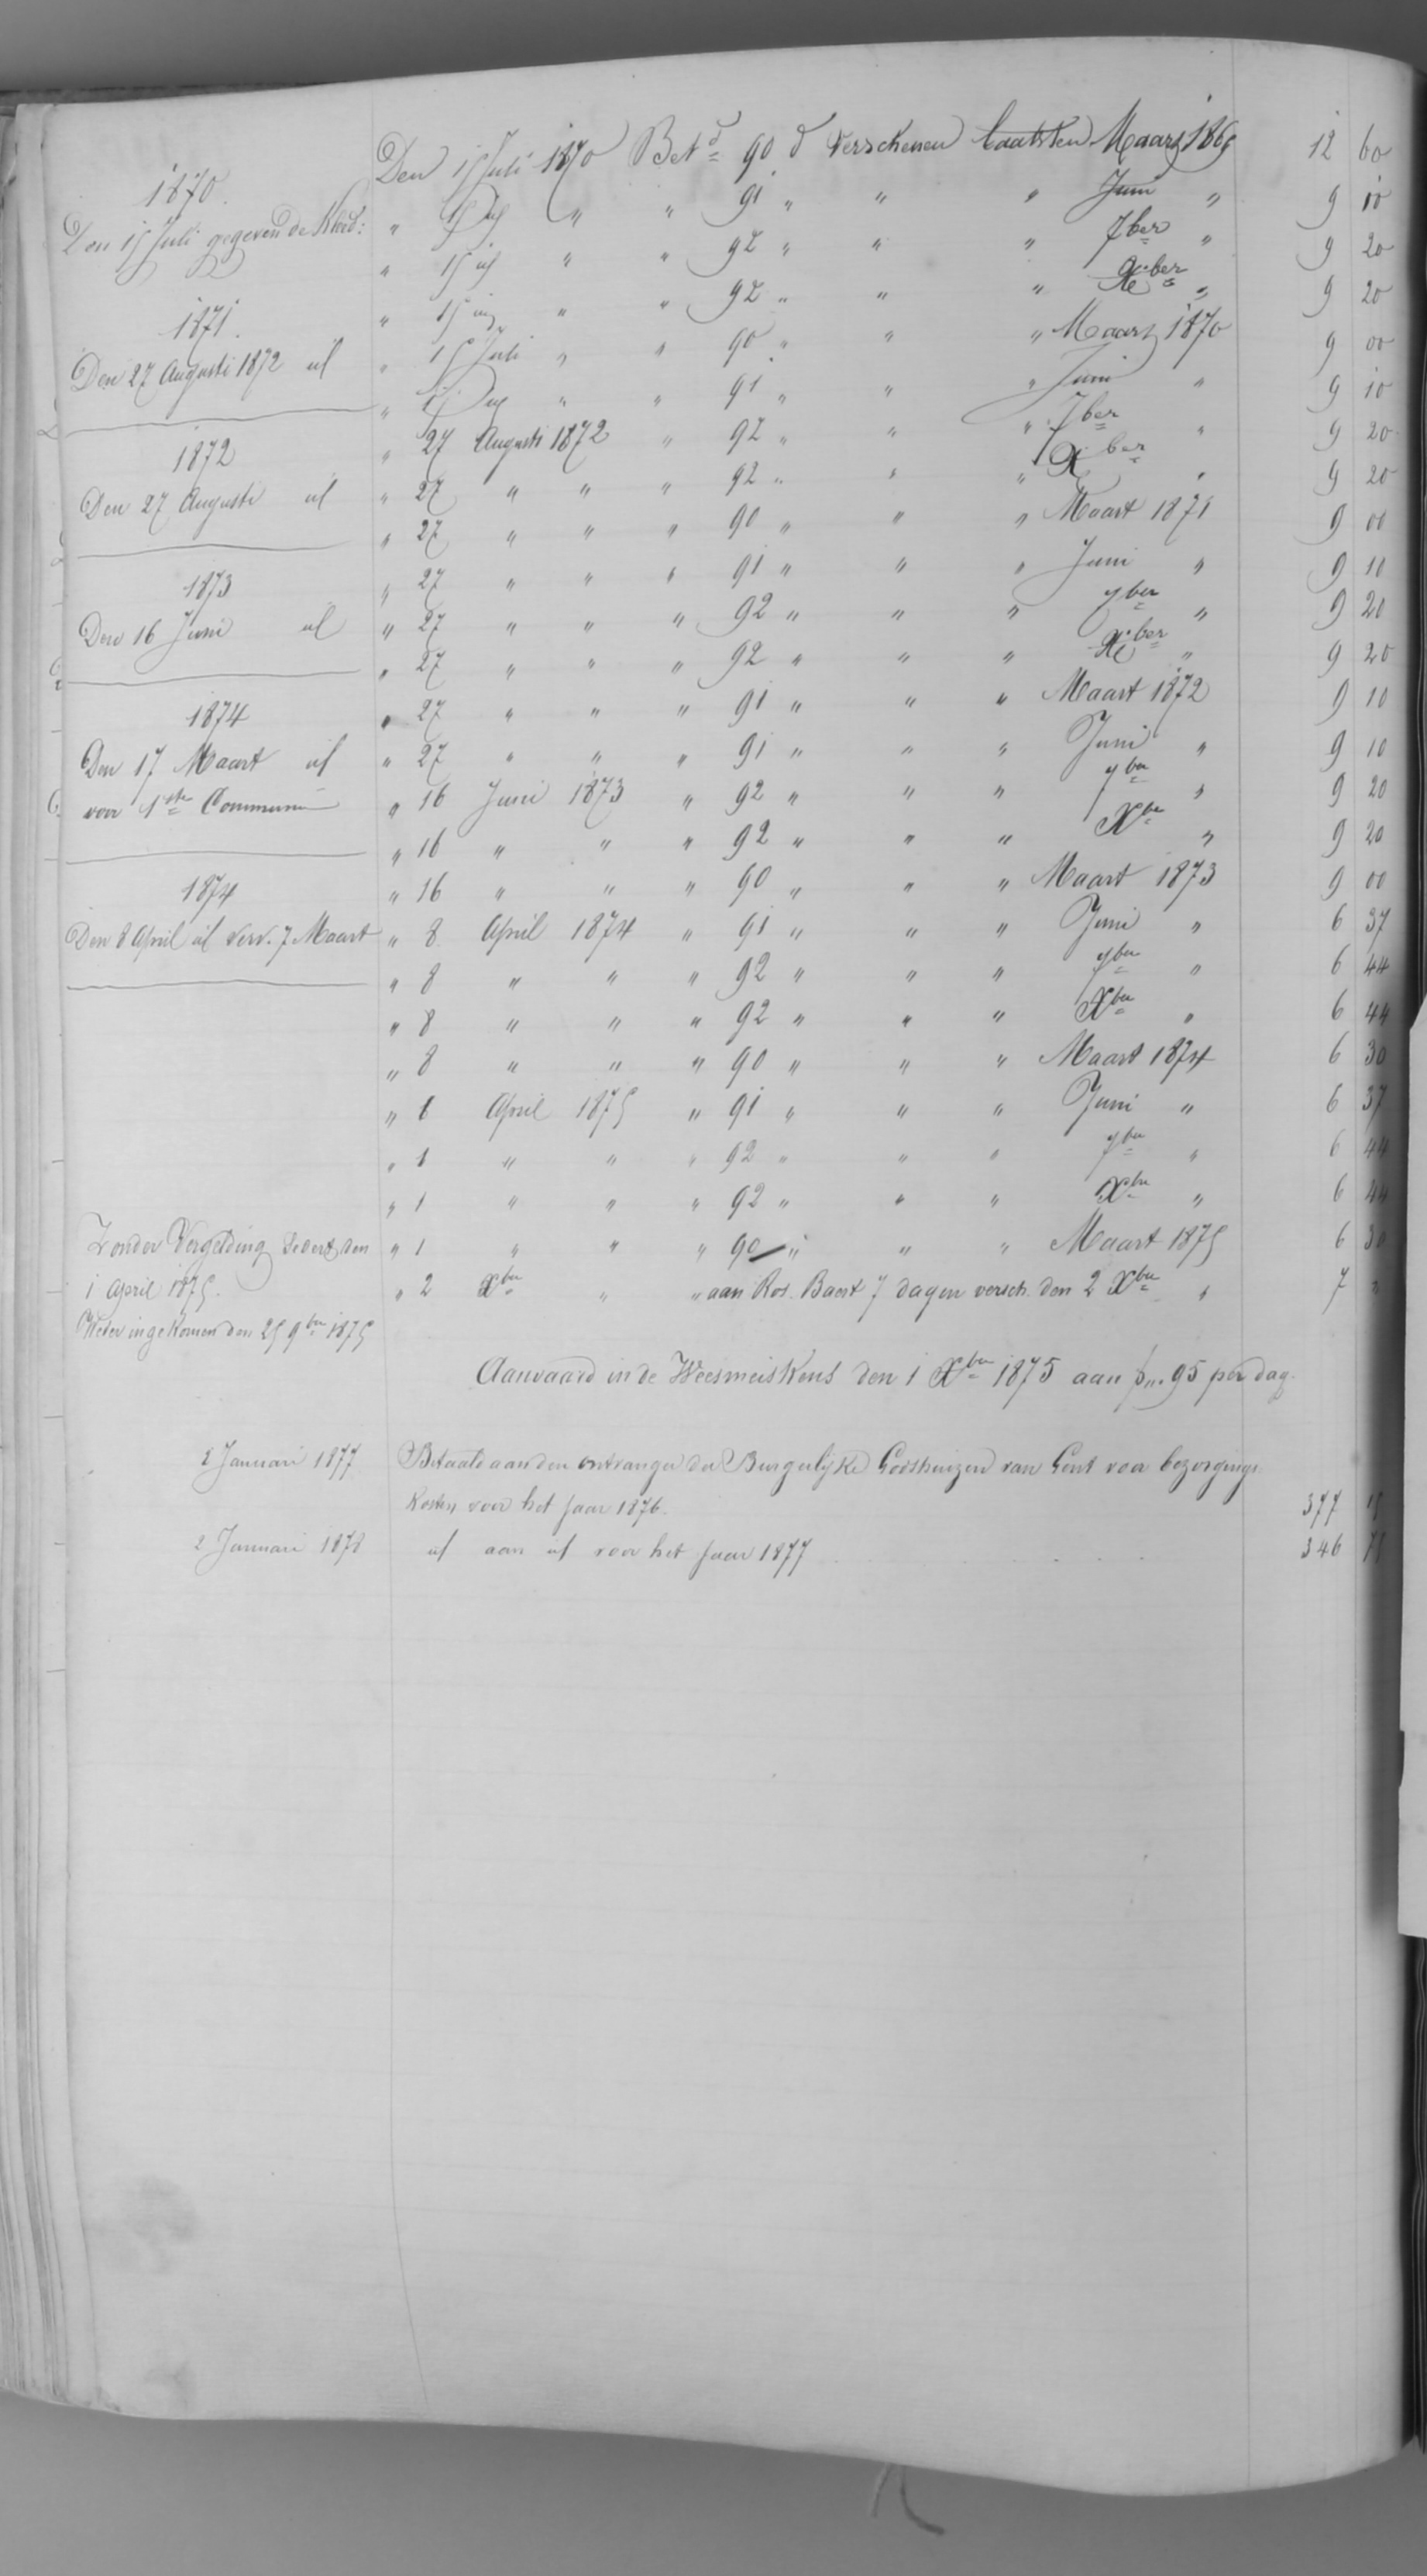 1870.
Den 15 Juli gegeven de Kleed:
1871.
Den 27 Augusti 1872 id
1872
Den 27 Augusti id
1873
Den 16 Juni id
1874
Den 17 Maart id
voor 1ste Communie
1874
Den 8 April id verv. 7 Maart
Zonder Vergelding sedert den
1 April 1875.
Weder ingekomen den 25 9ber 1875
Den 15 Juli 1870 Betd 90 d verschenen laatsten Maart 1869 12 60
" 15 id " " 91 " " " Juni " 9 10
" 15 id " " 92 " " " 7ber " 9 20
" 15 id " " 92 " " " Xber " 9 20
" 15 Juli " " 90 " " " Maart 1870 9 00
" 15 id " " 91 " " " Juni " 9 10
" 27 Augusti 1872 " 92 " " " 7ber " 9 20
" 27 " " " 92 " " " Xber " 9 20
" 27 " " " 90 " " " Maart 1871 9 00
" 27 " " " 91 " " " Juni " 9 10
" 27 " " " 92 " " " 7ber " 9 20
" 27 " " " 92 " " " Xber " 9 20
" 27 " " " 91 " " " Maart 1872 9 10
" 27 " " " 91 " " " Juni " 9 10
" 16 Juni 1873 " 92 " " " 7ber " 9 20
" 16 " " " 92 " " " Xber " 9 20
" 16 " " " 90 " " " Maart 1873 9 00
" 8 April 1874 " 91 " " " Juni " 6 37
" 8 " " " 92 " " " 7ber " 6 44
" 8 " " " 92 " " " Xber " 6 44
" 8 " " " 90 " " " Maart 1874 6 30
" 1 April 1875 " 91 " " " Juni " 6 37
" 1 " " " 92 " " " 7ber " 6 44
" 1 " " " 92 " " " Xber " 6 44
" 1 " " " 90 " " " Maart 1875 6 30
" 2 Xber " " aan Ros. Baert 7 dagen versch. den 2 Xber " 7 "
Aanvaard in de Weesmeiskens den 1 Xber 1875 aan f". 95 per dag.
2 Januari 1877 Betaald aan den ontvanger der Burgerlijke Godshuizen van Gent voor bezorgings
kosten voor het Jaar 1876. 377 15
2 Januari 1878 id aan id voor het Jaar 1877 346 75